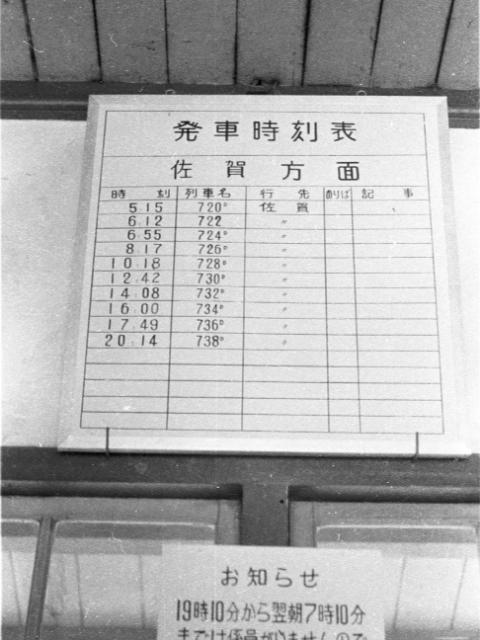 発車時刻表
佐賀方面
時刻 列車名 行先 のりば 記事
5.15 720D 佐賀
6.12 722 〃
6.55 724D 〃
8.17 726D 〃
10.18 728D 〃
12.42 730D 〃
14.08 732D 〃
16.00 734D 〃
17.49 736D 〃
20.14 738D 〃
お知らせ
19時10分から翌朝7時10分
までは係員がいませんので